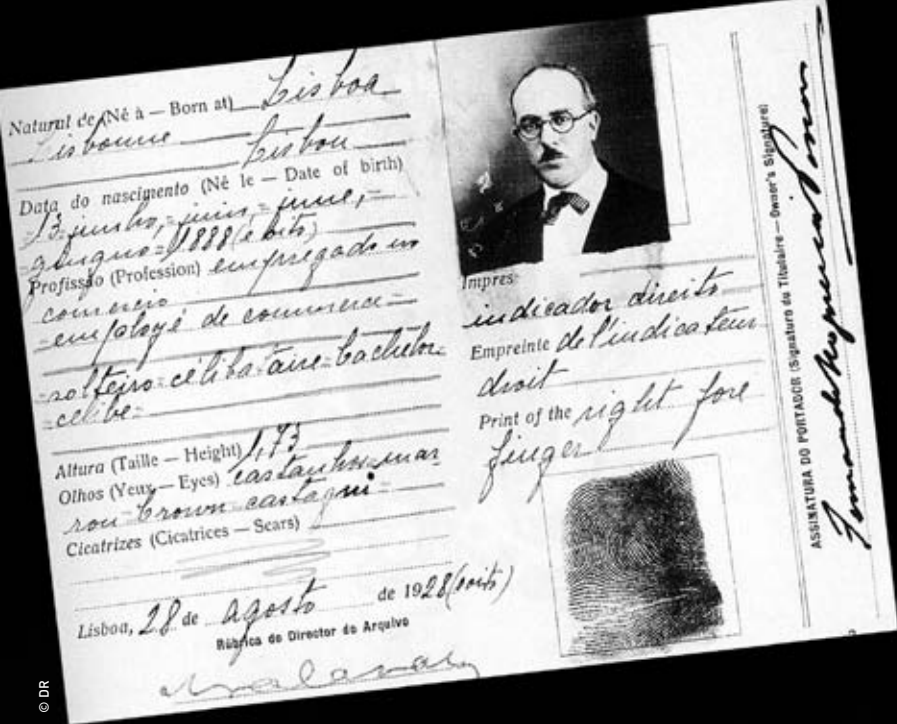 Natural de (Né à — Born at) Lisboa
Lisbonne Lisbon
Data do nascimento (Né le — Date of birth)
-13-junho,-juin,-june,-
-giugno-1888 (e oito)
Profissão (Profession) empregado no
comercio
-employé de commerce-
-solteiro-célibataire-bachelor-
-celibe-
Altura (Taille — Height) 1,73
Olhos (Yeux — Eyes) castanhos-mar
ron-brown-castagni-
Cicatrizes (Cicatrices — Scars)
Lisboa, 28 de agosto de 1928 (e oito)
Rúbrica do Director do Arquivo
Impres:
indicador direito
Empreinte de l'indicateur
droit
Print of the right fore
finger
ASSINATURA DO PORTADOR (Signature du Titulaire — Owner's Signature)
Fernando Nogueira Pessoa
© DR